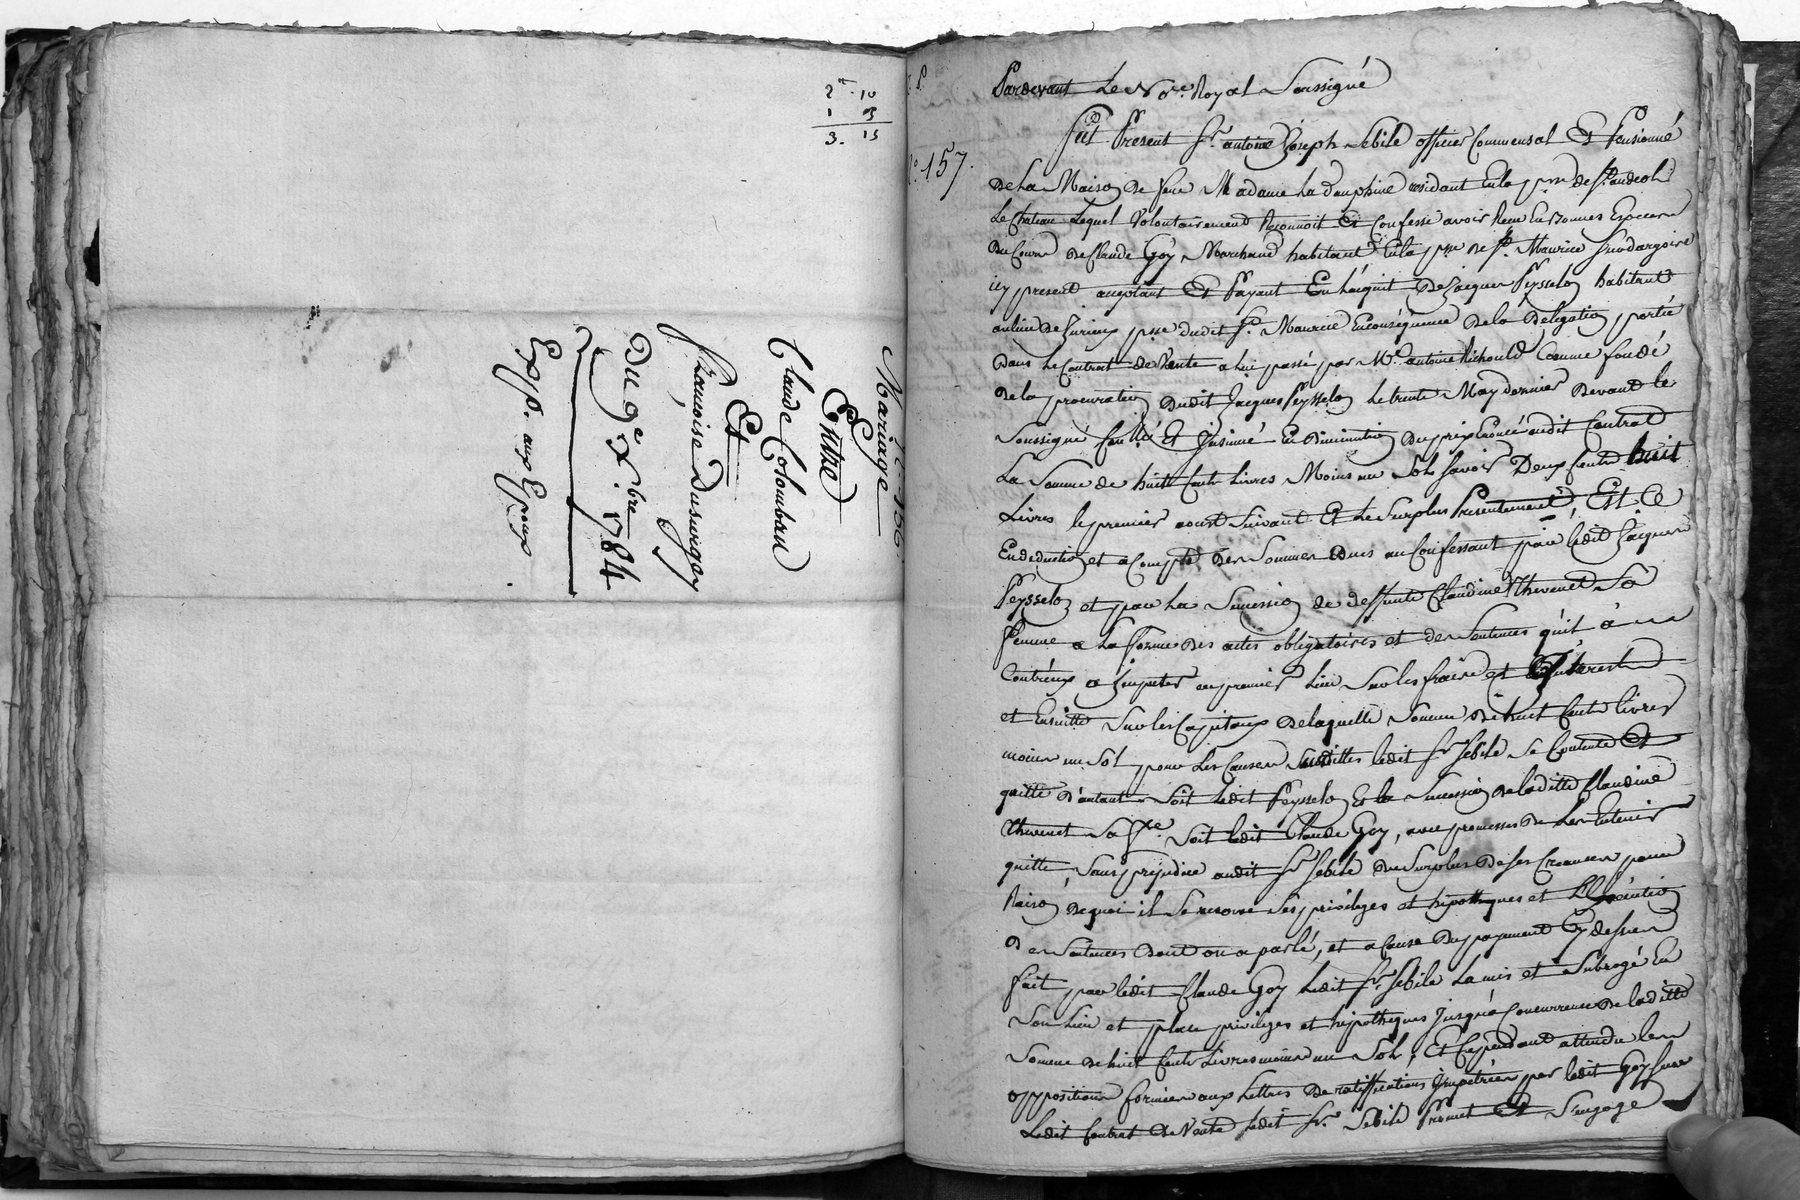 2# 10
1 5
3. 15
N° 156.
Mariage
Entre
Claude Colomban
Et
Françoise Dusurgey
Du 9e Xbre 1784
Exp.p. aux Epoux
N° 157.
Pardevant Le Nore. Royal Soussigné
fut Present Sr. antoine Joseph Sebile officier Commensal Et Pensionné
De La Maison De feue Madame La dauphine residant En la psse de St. andeol
Le Chateau Lequel Volontairement Reconnoit Et Confesse avoir Recu En Bonnes Especes
Du Cours De Claude Goy Marchand habitant En la psse De St. Maurice
icy present acceptant Et Payant En L'acquit De Jacques Peysselon habitant
au lieu De psse dudit St. Maurice En conséquence De la Delegation portée
Dans Le Contrat de Vente a Lui passé par Me. antoine Comme fondé
De la procuration Dudit Jacques Peysselon Le trente May dernier Devant le
Soussigné Et Insinué En Diminution Du prix Enoncé audit Contrat
La Somme de huit Cents Livres Moins un Sol Savoir Deux Cents huit
Livres le premier aoust Suivant Et Le Surplus Presentement, Est Ce
En deduction et a Compte Des Sommes Dues au Confessant par ledit Jacques
Peysselon et par La Succession de deffunte Claudine Thevenet Sa
femme a La forme Des actes obligatoires et des Sentences qu'il a
Contr'eux a Imputer en premier Lieu Sur les frais et Interest
et Ensuitte Sur les Capitaux De laquelle Somme De huit Cents livres
moins un Sol pour Les Causes Susdittes ledit Sr Sebile Se Contente Et
quitte D'autant Soit Ledit Peysselon Et La Succession De laditte Claudine
Thevenet Sa fe. Soit ledit Claude Goy, avec promesses De Les Entenir
quitte, Sans prejudice audit Sr Sebile Du Surplus De Ses Creances pour
Raison De quoi il Se reserve Ses privileges et hipotheques et L'Execution
Des Sentences Dont on a parlé, et a Cause Du payement Cy dessus
fait par ledit Claude Goy Ledit Sr. Sebile La mis et Subrogé En
Son Lieu et place privileges et hipotheques Jusqu'a Concurrence De laditte
Somme De huit Cents Livres moins un Sol, Et Cependant attendu les
oppositions formées aux Lettres De ratiffications Impetrées par ledit Goy Sur
Ledit Contrat De Vente Ledit Sr. Sebile Promet Et S'engage